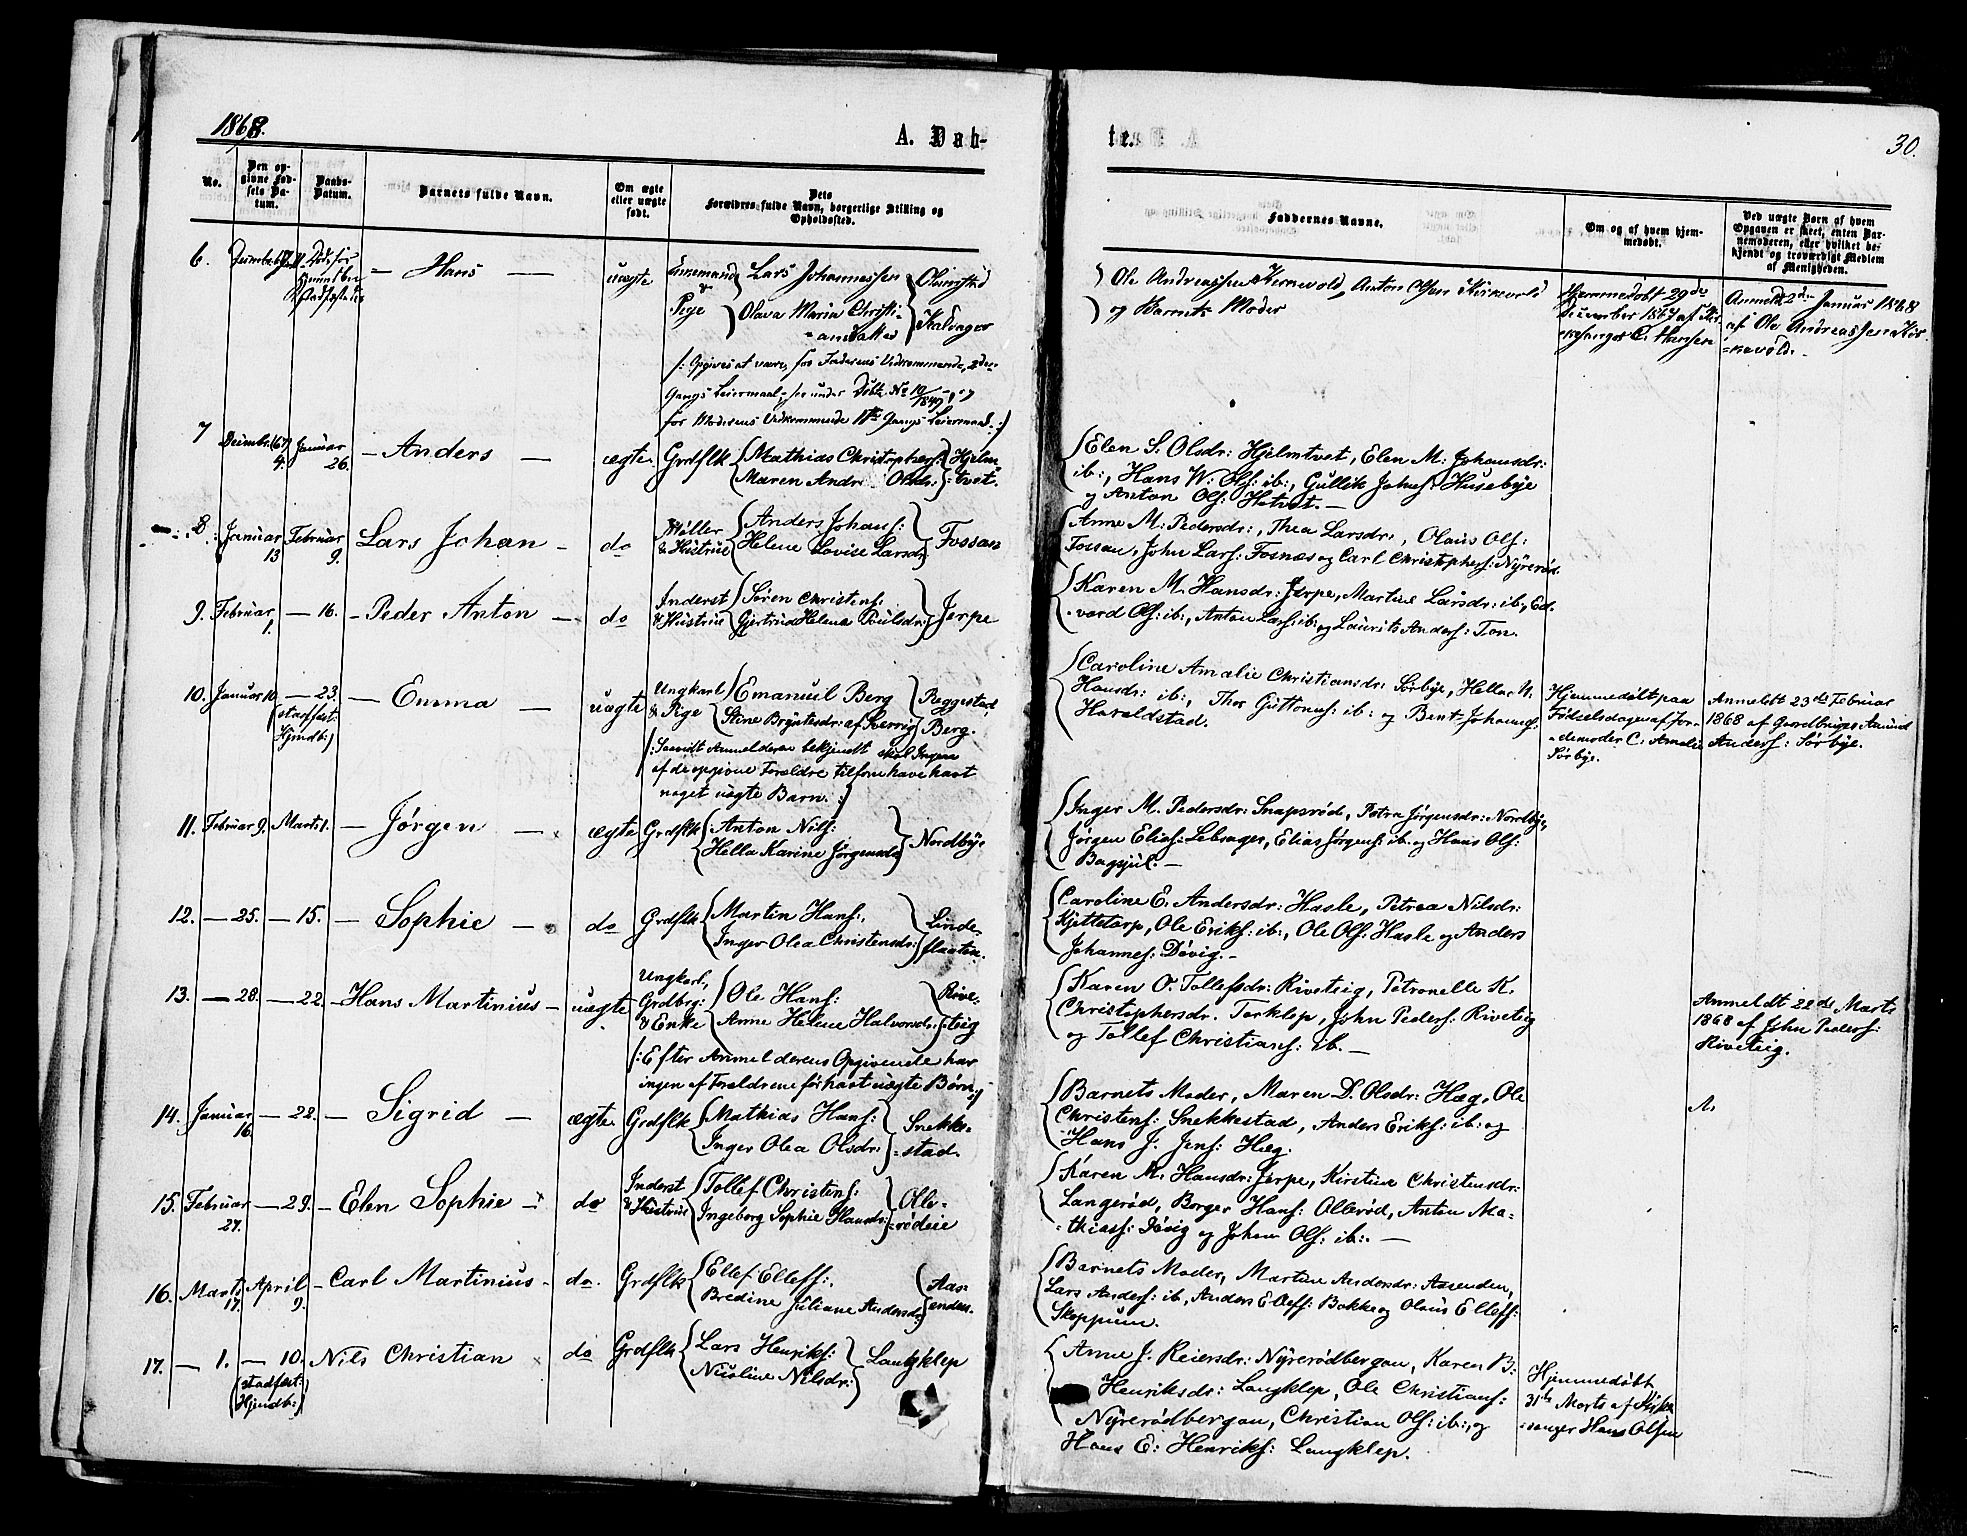 1868.
A. Døb-
te.
30.
No.
Den op-
givne Fød-
sels Da-
tum.
Daabs-
Datum.
Barnets fulde Navn.
Om ægte
eller uægte
født.
Dets
Forældres fulde Navn, borgerlige Stilling og
Opholdssted.
Faddernes Navne.
Om og af hvem hjem-
medøbt.
Ved uægte Børn af hvem
Opgaven er skeet, enten Bar-
nemoderen, eller hvilket be-
kjendt og troværdigt Medlem
af Menigheden.
6.
— Hans —
uægte
Enkemand
&
Pige
Lars Johannessen
Olava Maria Christi-
=ansdatter
/: Opgives at være, for Faderens Vedkommende, 2den
Gangs Leiermaal, see under Døbte No 10/1849, og
for Moderens Vedkommende 1ste Gangs Leiermaal :/
Ole Andreassen Kirkevold, Anton Olsen Kirkevold
og Barnets Moder
Hjemmedøbt 29de
December 1867 af Kir-
kesanger C. Hansen
Anmeldt 2den Januar 1868
af Ole Andreassen Kir-
=kevold.
7
Decembr. (67) 4.
Januar 26.
— Anders —
ægte.
Grdflk
Mathias Christophers:
Maren Andr: Olsdr:
Hjelm-
:tvet.
Elen S. Olsdr: Hjelmtvet, Elen M: Johansdr:
ib:, Hans W: Ols: ib:, Gullik Johns: Husebye
og Anton Ols: Hotvet. —
8
Januar 13
Februar 9.
Lars Johan —
do
Møller
& Hustrue
Anders Johans:
Helene Lovise Larsdr:
Fossan
Anne M: Pedersdr:, Thea Larsdr:, Olaus Ols:
Fossan, John Lars: Fosnæs og Carl Christophers: Nyrerød.
9.
Februar 1.
— 16.
- Peder Anton —
do
Inderst
& Hustrue
Søren Christens:
Gjertrud Helene Poulsdr:
Jerpe
Karen M. Hansdr: Jerpe, Martine Larsdr: ib:, Ed-
vard Ols: ib:, Anton Lars: ib: og Laurits Anders: Ton.
10.
Januar 10.
— 23.
(stadfæst:
Hjmdb:)
— Emma —
uægte
Ungkarl
& Pige
Emanuel Berg
Stine Bryntesdr: af Kerrig
Reggestad,
Berg.
/: Saavidt Anmelderen bekjendt skal Ingen
af de opgivne Forældre tilforn have havt
noget uægte Barn. :/
Caroline Amalie Christiansdr: Sørbye, Hella N.
Hansdr: ib:, Thor Guttorms: ib: og Bent Johanns:
Haraldstad.
Hjemmedøbt paa
Fødselsdagen af Jor-
=demoder C: Amalie
Sørbye.
Anmeldt 23de Februar
1868 af Gaardbruger Amund
Anders: Sørbye.
11.
Februar 9.
Marts 1.
— Jørgen —
ægte
Grdflk
Anton Nils:
Hella Karine Jørgensdr
Nordbye
Inger M. Pedersdr: Snapsrød, Petra Jørgensdr: Nordbye,
Jørgen Elias: Lebsager, Elias Jørgens: ib: og Hans Ols:
12.
— 25.
— 15.
— Sophie —
do
Grdflk
Martin Hans:,
Inger Olea Christensdr:
Linde-
flaaten.
Caroline E. Andersdr: Hasle, Petrea Nilsdr:
Kjettetorp, Ole Eriks: ib:, Ole Ols: Hasle og Anders
Johannes: Døvig. —
13.
— 28.
— 22.
— Hans Martinius —
uægte
Ungkarl,
Grdbrg:
& Enke
Ole Hans:
Anne Helene Halvorsdr:
Rive-
:teig
/: Efter Anmelderens Opgivende har
ingen af Forældrene før havt uægte Børn :/
Karen O. Tollefsdr: Riveteig, Petronelle K.
Christophersdr. Torklep, John Peders: Riveteig
og Tollef Christians: ib. —
Anmeldt 22de Marts
1868 af John Peders:
Riveteig.
14.
Januar 16.
— 22.
— Sigrid —
ægte.
Grdflk
Mathias Hans:
Inger Olea Olsdr:
Snekke-
:stad.
Barnets Moder, Maren D. Olsdr: Hæg, Ole
Christens: Snekkestad, Anders Eriks: ib: og
Hans J. Jens: Hæg.
15.
Februar 27.
— 29.
— Elen Sophie —
do
Inderst
& Hustrue
Tollef Christens:
Ingeborg Sophie Hansdr:
Olle-
:rødeie
Karen M. Hansdr: Jerpe, Kirstine Christensdr:
Langerød, Borger Hans: Ollerød, Anton Ma-
:thias: Døvig og Johan Ols: ib:. —
16.
Marts 17.
April 9.
- Carl Martinius -
do.
Grdflk
Ellef Ellefs:,
Bredine Juliane Andersdr
Aas-
enden.
Barnets Moder, Martine Andersdr: Aasenden,
Lars Anders: ib, Anders Ellefs: Bakke og Olaus Ellefs:
Skoppum.
17.
— 1.
— 10.
(stadfæst:
Hjmdb:)
Nils Christian
do
Grdflk
Lars Henriks:
Nicoline Nilsdr:
Langklep
Anne J. Reiersdr: Nyrerødbergan, Karen B:
Henriksdr: Langklep, Ole Christians:
Nyrerødbergan, Christian Ols: ib:, og
Hans E: Henriks: Langklep.
Hjemmedøbt
31te Marts af Kirke-
:sanger Hans Olsen